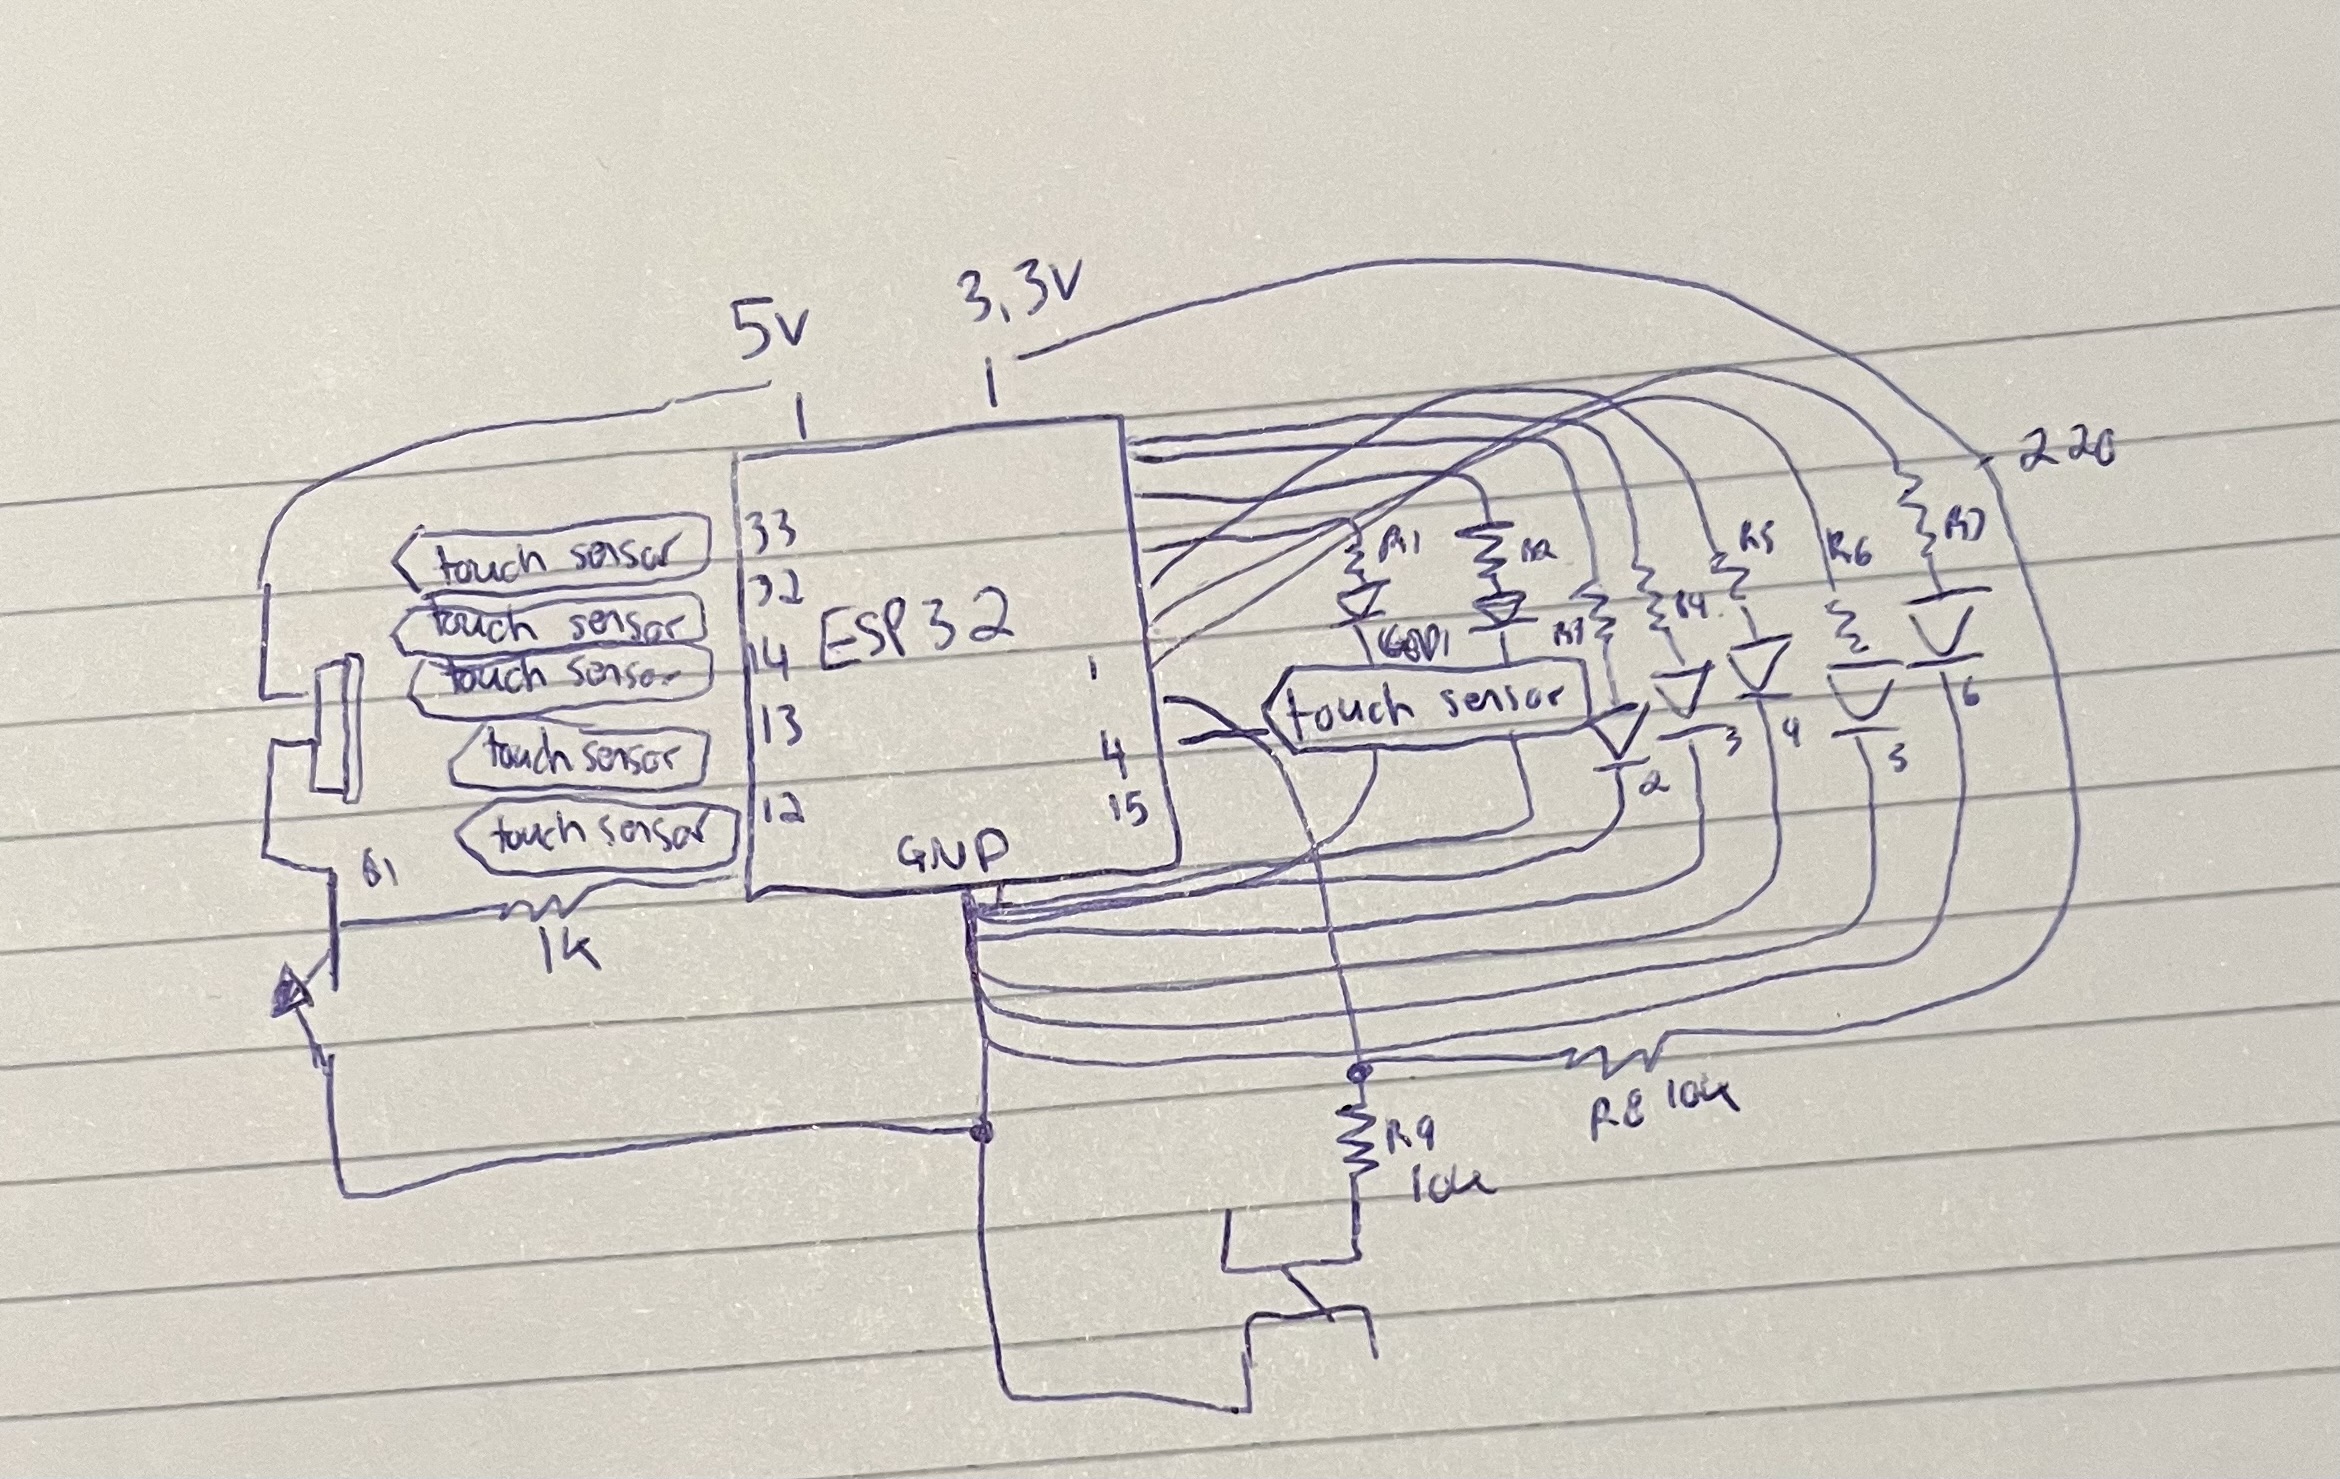 5V
3,3V
220
33
touch sensor
32
touch sensor
14
touch sensor
13
touch sensor
12
touch sensor
ESP32
1
4
15
GND
R1
R2
R3
R4
R5
R6
R7
touch sensor
2
3
4
5
6
Q1
1K
R8 10k
R9
10k